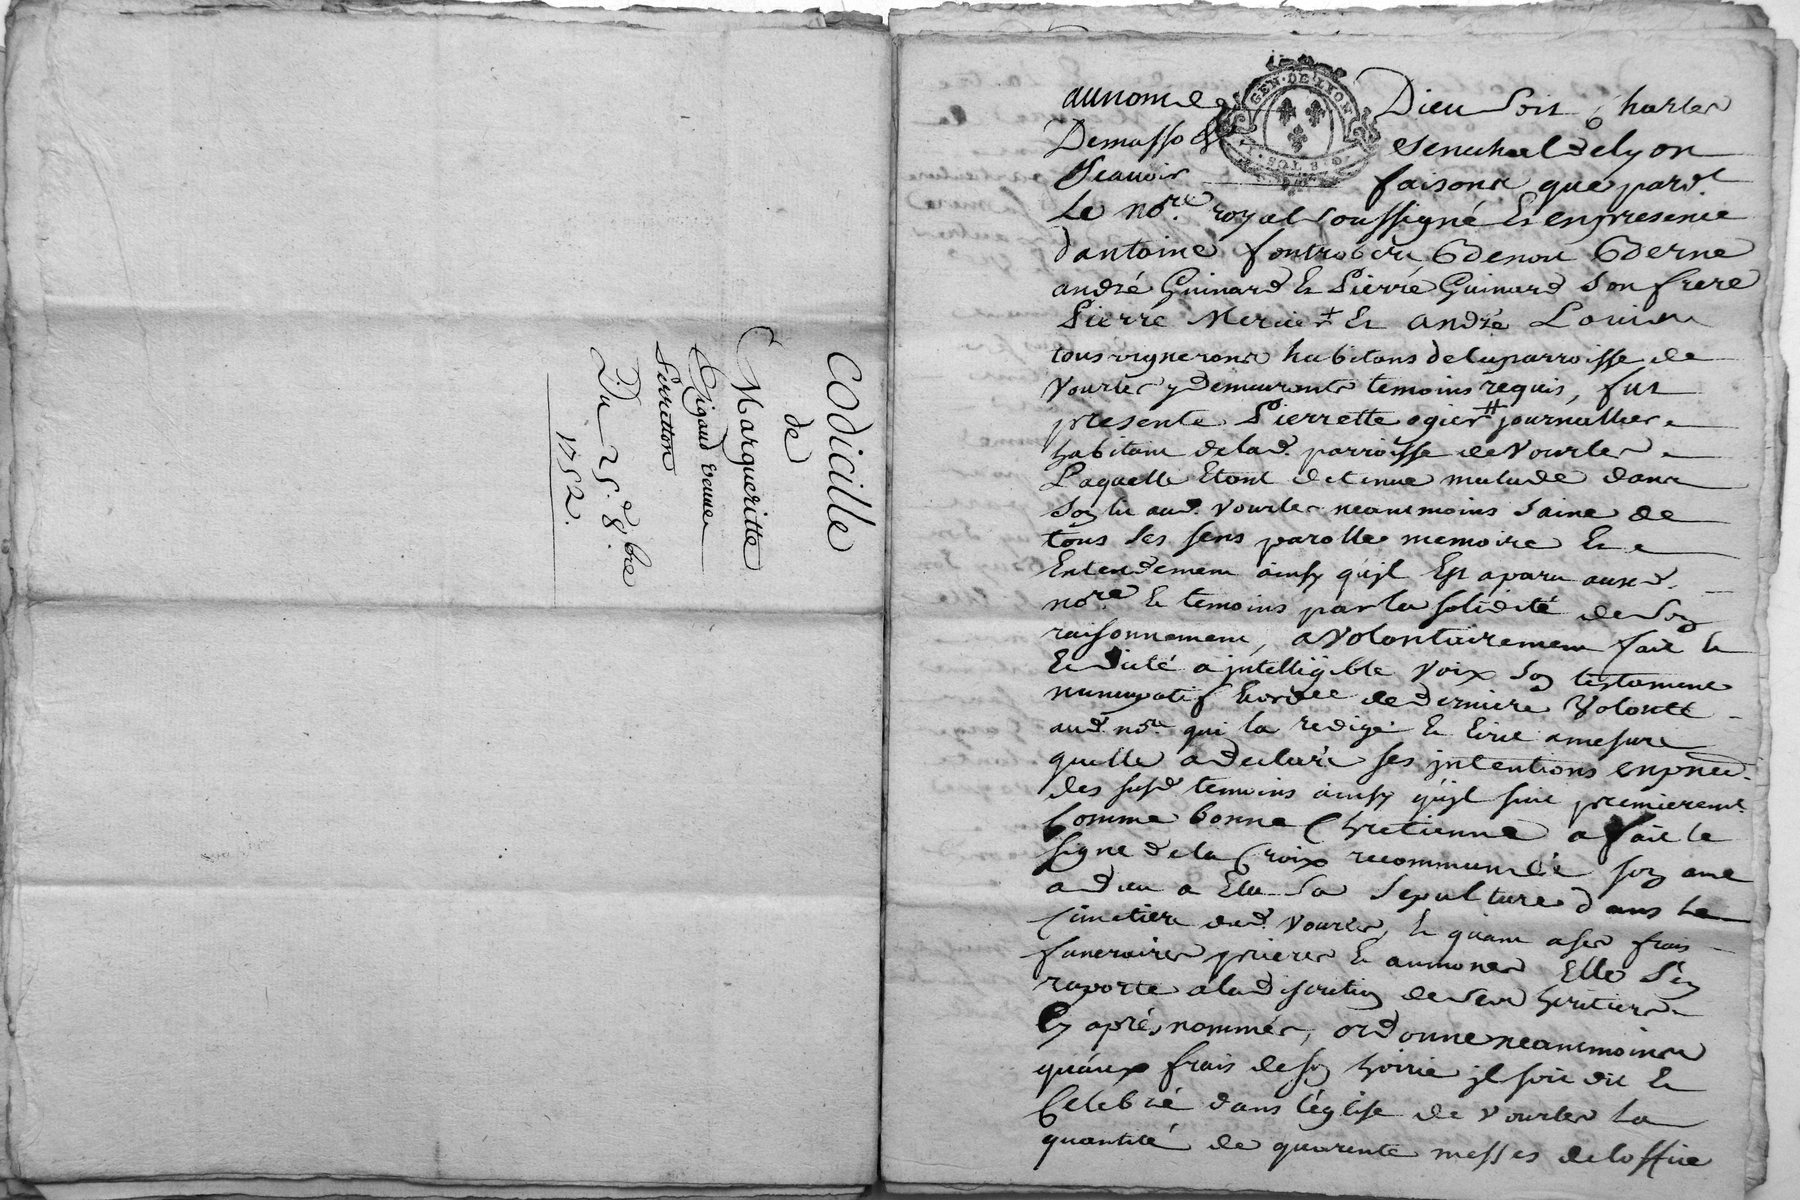 Codicille
de
Margueritte
Rigaud veuve
Si
Du 25.e 8.bre
1752.
GEN. DE LYON
au nom de Dieu soit Charles
Demasso senechal de lyon
scavoir faisons que pard.t
Le no.re royal soussigné Et en presence
d'antoine benoit
andré Guinard Et Pierre Guinard son frere
Pierre Mercier + Et andré Louis
tous vignerons habitans de la parroisse de
vourles y demeurants temoins requis, fut
presente Pierrette ogier # journalliere
habitant de lad. parroisse de vourles
Laquelle Etant detenue malade dans
son lit aud. vourles neantmoins saine de
tous ses sens parolle memoire Et
Entendement ainsy qu'jl Est aparu auxd.
no.re Et temoins par la solidité de son
raisonnement, a volontairement fait
Et dicté a jntelligible voix son testament
nuncupatif de derniere volonté
aud. no.re qui la redigé Et Ecrit a mesure
quelle a declaré ses jntentions en pnce.
des susd. temoins ainsy qu'jl suit premierem.t
Comme bonne Chretienne a fait le
signe de la Croix recommandé son ame
a dieu a Elu sa sepulture dans le
Cimetiere dud. vourles, Et quant a ses frais
funeraires prieres Et aumones Elle s'en
raporte a la discrétion de ses heritiers
Cy aprés nommés, ordonne neantmoins
qu'aux frais de son hoirie jl soit dit Et
Celebré dans l'église de vourles la
quantité de quarente messes de loffice